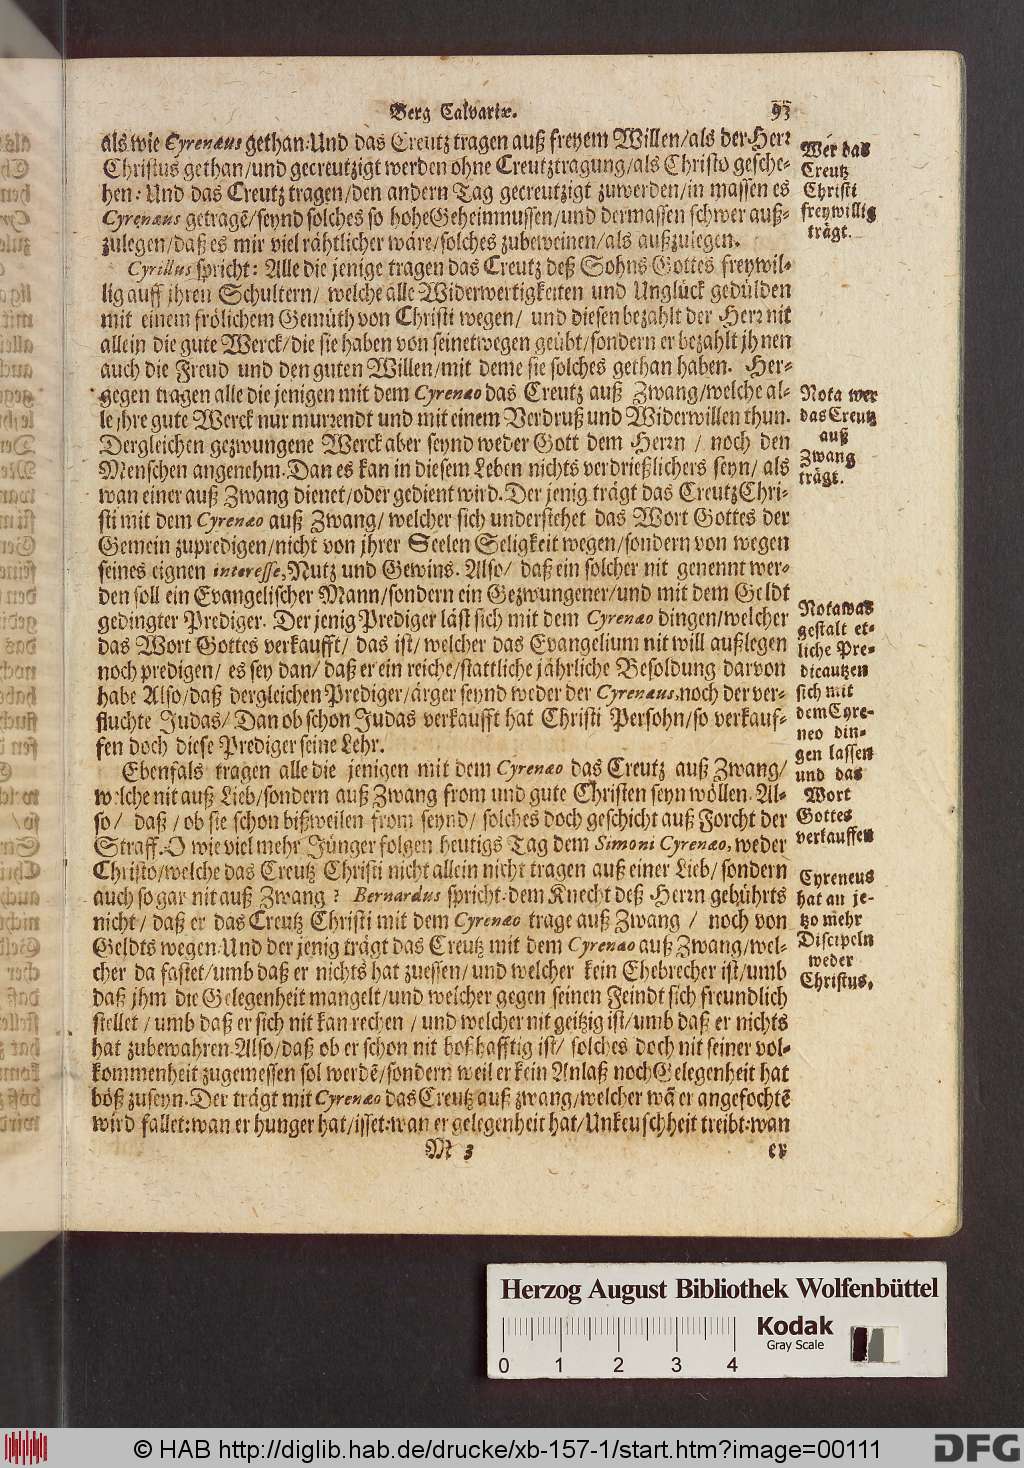 Berg Calvariæ. 93
als wie Cyrenæus gethan. Und das Creutz tragen auß freyem Willen/als der Herr
Christus gethan/und gecreutzigt werden ohne Creutztragung/als Christo gesche-
hen: Und das Creutz tragen/den andern Tag gecreutzigt zuwerden/in massen es
Cyrenæus getragē/seynd solches so hohe Geheimnussen/und dermassen schwer auß-
zulegen/daß es mir viel rähtlicher wäre/solches zubeweinen/als außzulegen.
Cyrillus spricht: Alle die jenige tragen das Creutz deß Sohns Gottes freywil-
lig auff jhren Schultern/ welche alle Widerwertigkeiten und Unglück gedulden
mit einem frölichem Gemüth von Christi wegen/ und diesen bezahlt der Herr nit
allein die gute Werck/die sie haben von seinetwegen geübt/sondern er bezahlt jhnen
auch die Freud und den guten Willen/mit deme sie solches gethan haben. Her-
gegen tragen alle die jenigen mit dem Cyrenæo das Creutz auß Zwang/welche al-
le jhre gute Werck nur murrendt und mit einem Verdruß und Widerwillen thun.
Dergleichen gezwungene Werck aber seynd weder Gott dem Herrn / noch den
Menschen angenehm. Dan es kan in diesem Leben nichts verdrießlichers seyn/ als
wan einer auß Zwang dienet/oder gedient wird. Der jenig trägt das Creutz Chri-
sti mit dem Cyrenæo auß Zwang/ welcher sich understehet das Wort Gottes der
Gemein zupredigen/nicht von jhrer Seelen Seligkeit wegen/sondern von wegen
seines eignen interesse, Nutz und Gewins. Also/ daß ein solcher nit genennt wer-
den soll ein Evangelischer Mann/sondern ein Gezwungener/und mit dem Geldt
gedingter Prediger. Der jenig Prediger läst sich mit dem Cyrenæo dingen/welcher
das Wort Gottes verkaufft/ das ist/ welcher das Evangelium nit will außlegen
noch predigen/ es sey dan/ daß er ein reiche/stattliche jährliche Besoldung darvon
habe Also/daß dergleichen Prediger/ärger seynd weder der Cyrenæus, noch der ver-
fluchte Judas/ Dan ob schon Judas verkaufft hat Christi Persohn/so verkauf-
fen doch diese Prediger seine Lehr.
Ebenfals tragen alle die jenigen mit dem Cyrenæo das Creutz auß Zwang/
welche nit auß Lieb/sondern auß Zwang from und gute Christen seyn wöllen. Al-
so/ daß/ ob sie schon bißweilen from seynd/ solches doch geschicht auß Forcht der
Straff. O wie viel mehr Jünger folgen heutigs Tag dem Simoni Cyrenæo, weder
Christo/welche das Creutz Christi nicht allein nicht tragen auß einer Lieb/ sondern
auch so gar nit auß Zwang? Bernardus spricht. dem Knecht deß Herrn gebührts
nicht/ daß er das Creutz Christi mit dem Cyrenæo trage auß Zwang / noch von
Geldts wegen. Und der jenig trägt das Creutz mit dem Cyrenæo auß Zwang/wel-
cher da fastet/umb daß er nichts hat zuessen/und welcher kein Ehebrecher ist/umb
daß jhm die Gelegenheit mangelt/und welcher gegen seinen Feindt sich freundlich
stellet / umb daß er sich nit kan rechen / und welcher nit geitzig ist/umb daß er nichts
hat zubewahren. Also/daß ob er schon nit boßhafftig ist/ solches doch nit seiner vol-
kommenheit zugemessen sol werdē/sondern weil er kein Anlaß noch Gelegenheit hat
böß zuseyn. Der trägt mit Cyrenæo das Creutz auß zwang/welcher wā er angefochtē
wird fallet: wan er hunger hat/isset: wan er gelegenheit hat/Unkeuschheit treibt: wan
M 3 er
Wer das
Creutz
Christi
freywillig
trägt.
Nota wer
das Creutz
auß
Zwang
trägt.
Nota was
gestalt et-
liche Pre-
dicautzen
sich mit
dem Cyre-
neo din-
gen lassen
und das
Wort
Gottes
verkauffen
Cyreneus
hat an je-
tzo mehr
Discipeln
weder
Christus.
Herzog August Bibliothek Wolfenbüttel
Kodak
Gray Scale
0 1 2 3 4
© HAB http://diglib.hab.de/drucke/xb-157-1/start.htm?image=00111
DFG